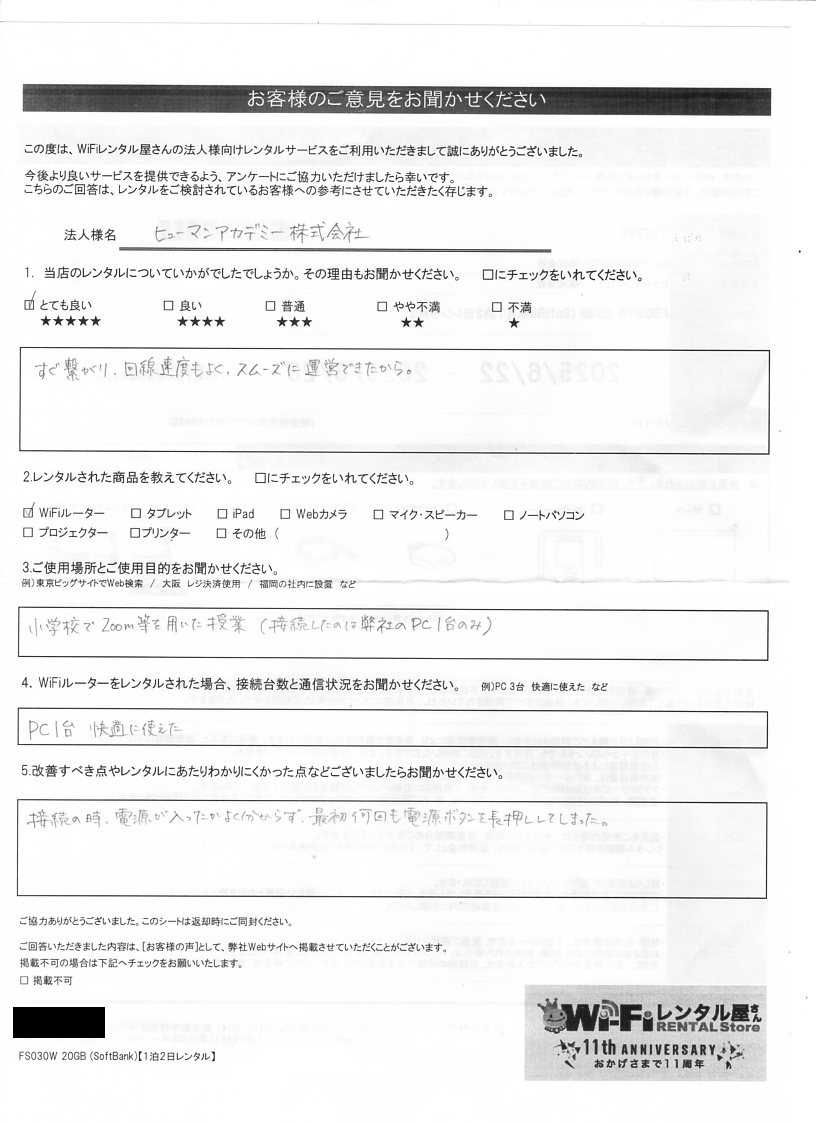 お客様のご意見をお聞かせください
この度は、WiFiレンタル屋さんの法人様向けレンタルサービスをご利用いただきまして誠にありがとうございました。
今後より良いサービスを提供できるよう、アンケートにご協力いただけましたら幸いです。
こちらのご回答は、レンタルをご検討されているお客様への参考にさせていただきたく存じます。
法人様名 ヒューマンアカデミー株式会社
1. 当店のレンタルについていかがでしたでしょうか。その理由もお聞かせください。 □にチェックをいれてください。
☑ とても良い □ 良い □ 普通 □ やや不満 □ 不満
★★★★★ ★★★★ ★★★ ★★ ★
すぐ繋がり、回線速度もよく、スムーズに運営できたから。
2.レンタルされた商品を教えてください。 □にチェックをいれてください。
☑ WiFiルーター □ タブレット □ iPad □ Webカメラ □ マイク・スピーカー □ ノートパソコン
□ プロジェクター □プリンター □ その他 ( )
3.ご使用場所とご使用目的をお聞かせください。
例)東京ビッグサイトでWeb検索 / 大阪 レジ決済使用 / 福岡の社内に設置 など
小学校でZoom等を用いた授業 (接続したのは弊社のPC1台のみ)
4. WiFiルーターをレンタルされた場合、接続台数と通信状況をお聞かせください。 例)PC 3台 快適に使えた など
PC1台 快適に使えた
5.改善すべき点やレンタルにあたりわかりにくかった点などございましたらお聞かせください。
接続の時、電源が入ったかよく分からず、最初何回も電源ボタンを長押ししてしまった。
ご協力ありがとうございました。このシートは返却時にご同封ください。
ご回答いただきました内容は、[お客様の声]として、弊社Webサイトへ掲載させていただくことがございます。
掲載不可の場合は下記へチェックをお願いいたします。
□ 掲載不可
Wi-Fiレンタル屋さん
RENTAL Store
11th ANNIVERSARY
おかげさまで11周年
FS030W 20GB (SoftBank)【1泊2日レンタル】